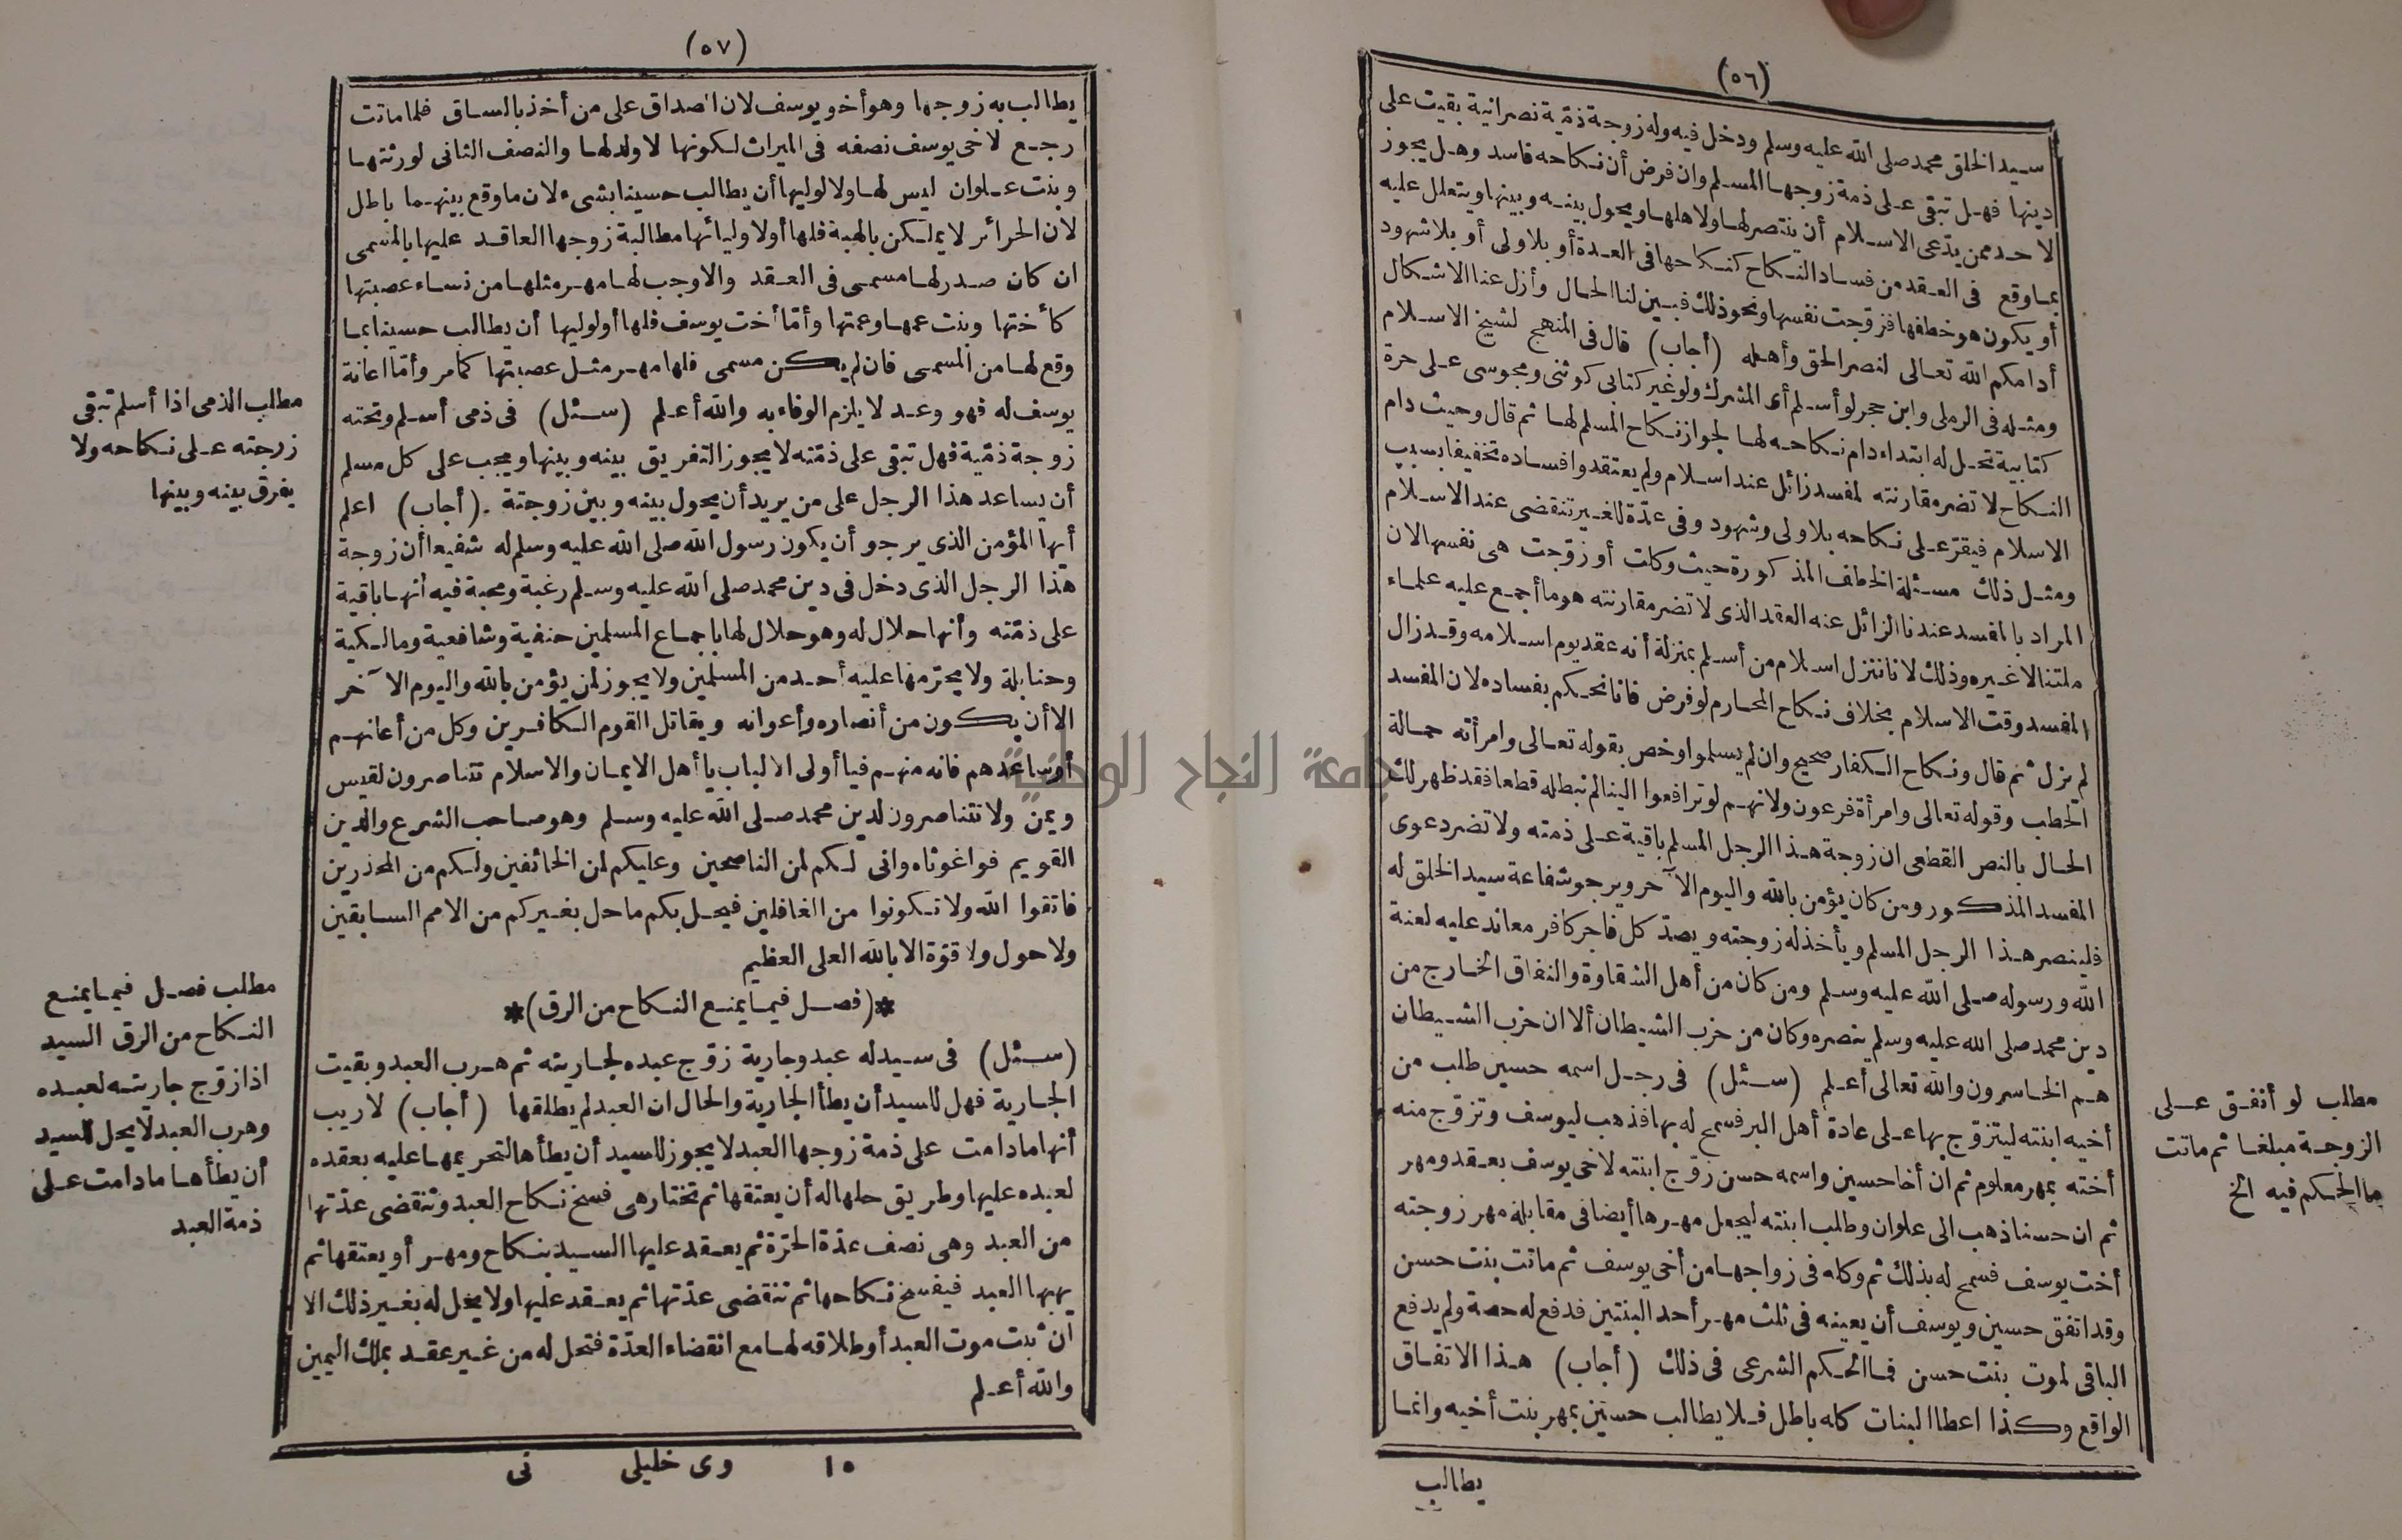 (٥٦)
سيد الخلق محمد صلى الله عليه وسلم ودخل فيه وله زوجة ذمية نصرانية بقيت على
دينها فهل تبقى على ذمة زوجها المسلم وان فرض أن نكاحه فاسد وهل يجوز
لاحد ممن يدعى الاسلام أن ينتصر لها ولاهلها ويحول بينه وبينها ويتعلل عليه
بما وقع فى العقد من فساد النكاح كنكاحها فى العدة أو بلا ولى أو بلا شهود
أو يكون هو خطفها فزوجت نفسها ونحو ذلك فبين لنا الحال وأزل عنا الاشكال
أدامكم الله تعالى لنصر الحق وأهله (أجاب) قال فى المنهج لشيخ الاسلام
ومثله فى الرملى وابن حجر لو أسلم أى المشرك ولو غير كتابى كوثنى ومجوسى على حرة
كتابية تحل له ابتداء دام نكاحه لها لجواز نكاح المسلم لها ثم قال وحيث دام
النكاح لا تضر مقارنته لمفسد زائل عند اسلام ولم يعتقدوا فساده تخفيفا بسبب
الاسلام فيقر على نكاحه بلا ولى وشهود وفى عدة للغير تنقضى عند الاسلام
ومثل ذلك مسئلة الخطف المذكورة حيث وكلت أو زوجت هى نفسها لان
المراد بالمفسد عندنا الزائل عنه العقد الذى لا تضر مقارنته هو ما أجمع عليه علماء
ملتنا لا غيره وذلك لاننا ننزل اسلام من أسلم بمنزلة أنه عقد يوم اسلامه وقد زال
المفسد وقت الاسلام بخلاف نكاح المحارم لو فرض فانا نحكم بفساده لان المفسد
لم يزل ثم قال ونكاح الكفار صحيح وان لم يسلموا وخص بقوله تعالى وامرأته حمالة
الحطب وقوله تعالى وامرأة فرعون ولانهم لو ترافعوا الينا لم نبطله قطعا فقد ظهر لك
الحال بالنص القطعى ان زوجة هذا الرجل المسلم باقية على ذمته ولا تضر دعوى
المفسد المذكور ومن كان يؤمن بالله واليوم الآخر ويرجو شفاعة سيد الخلق له
فلينصر هذا الرجل المسلم ويأخذ له زوجته ويصد كل فاجر كافر معاند عليه لعنة
الله ورسوله صلى الله عليه وسلم ومن كان من أهل الشقاوة والنفاق الخارج من
دين محمد صلى الله عليه وسلم ينصره وكان من حزب الشيطان ألا ان حزب الشيطان
هم الخاسرون والله تعالى أعلم (سئل) فى رجل اسمه حسين طلب من
أخيه ابنته ليتزوج بها على عادة أهل البر فسمح له بها فذهب ليوسف وتزوج منه
أخته بمهر معلوم ثم ان أخا حسين واسمه حسن زوج ابنته لاخى يوسف بعقد ومهر
ثم ان حسنا ذهب الى علوان وطلب ابنته ليجعل مهرها أيضا فى مقابلة مهر زوجته
أخت يوسف فسمح له بذلك ثم وكله فى زواجها من أخى يوسف ثم ماتت بنت حسن
وقد اتفق حسين ويوسف أن يعينه فى ثلث مهر أحد البنتين فدفع له حصة ولم يدفع
الباقى لموت بنت حسن فما الحكم الشرعى فى ذلك (أجاب) هذا الاتفاق
الواقع وكذا اعطا البنات كله باطل فلا يطالب حسين بمهر بنت أخيه وانما
يطالب
مطلب لو أنفق على
الزوجة مبلغا ثم ماتت
ما الحكم فيه الخ
(٥٧)
يطالب به زوجها وهو أخو يوسف لان الصداق على من أخذ بالساق فلما ماتت
رجع لاخى يوسف نصفه فى الميراث لكونها لا ولد لها والنصف الثانى لورثتها
وبنت علوان ليس لها ولا لوليها أن يطالب حسينا بشىء لان ما وقع بينهما باطل
لان الحرائر لا يملكن بالهبة فلها أو لاوليائها مطالبة زوجها العاقد عليها بالمسمى
ان كان صدر لها مسمى فى العقد والا وجب لها مهر مثلها من نساء عصبتها
كأختها وبنت عمها وعمتها وأما أخت يوسف فلها أو لوليها أن يطالب حسينا بما
وقع لها من المسمى فان لم يكن مسمى فلها مهر مثل عصبتها كما مر وأما اعانة
يوسف له فهو وعد لا يلزم الوفاء به والله أعلم (سئل) فى ذمى أسلم وتحته
زوجة ذمية فهل تبقى على ذمته لا يجوز التفريق بينه وبينها ويجب على كل مسلم
أن يساعد هذا الرجل على من يريد أن يحول بينه وبين زوجته . (أجاب) اعلم
أيها المؤمن الذى يرجو أن يكون رسول الله صلى الله عليه وسلم له شفيعا أن زوجة
هذا الرجل الذى دخل فى دين محمد صلى الله عليه وسلم رغبة ومحبة فيه أنها باقية
على ذمته وأنها حلال له وهو حلال لها باجماع المسلمين حنفية وشافعية ومالكية
وحنابلة ولا يحرمها عليه أحد من المسلمين ولا يجوز لمن يؤمن بالله واليوم الآخر
الا أن يكون من أنصاره وأعوانه ويقاتل القوم الكافرين وكل من أعانهم
أو ساعدهم فانه منهم فيا أولى الالباب يا أهل الايمان والاسلام تتناصرون لقيس
ويمن ولا تتناصرون لدين محمد صلى الله عليه وسلم وهو صاحب الشرع والدين
القويم فواغوثاه وانى لكم لمن الناصحين وعليكم لمن الخائفين ولكم من المحذرين
فاتقوا الله ولا تكونوا من الغافلين فيحل بكم ما حل بغيركم من الامم السابقين
ولا حول ولا قوة الا بالله العلى العظيم
*(فصل فيما يمنع النكاح من الرق)*
(سئل) فى سيد له عبد وجارية زوج عبده لجاريته ثم هرب العبد وبقيت
الجارية فهل للسيد أن يطأ الجارية والحال ان العبد لم يطلقها (أجاب) لا ريب
أنها ما دامت على ذمة زوجها العبد لا يجوز للسيد أن يطأها لتحريمها عليه بعقده
لعبده عليها وطريق حلها له أن يعتقها ثم تختار هى فسخ نكاح العبد وتنقضى عدتها
من العبد وهى نصف عدة الحرة ثم يعقد عليها السيد بنكاح ومهر أو يعتقها ثم
يهبها العبد فيفسخ نكاحها ثم تنقضى عدتها ثم يعقد عليها ولا يحل له بغير ذلك الا
ان ثبت موت العبد أو طلاقه لها مع انقضاء العدة فتحل له من غير عقد بملك اليمين
والله أعلم
١٥ وى خليلى نى
مطلب الذمى اذا أسلم تبقى
زوجته على نكاحه ولا
يفرق بينه وبينها
مطلب فصل فيما يمنع
النكاح من الرق السيد
اذا زوج جاريته لعبده
وهرب العبد لا يحل للسيد
أن يطأها ما دامت على
ذمة العبد
جامعة النجاح الوطنية